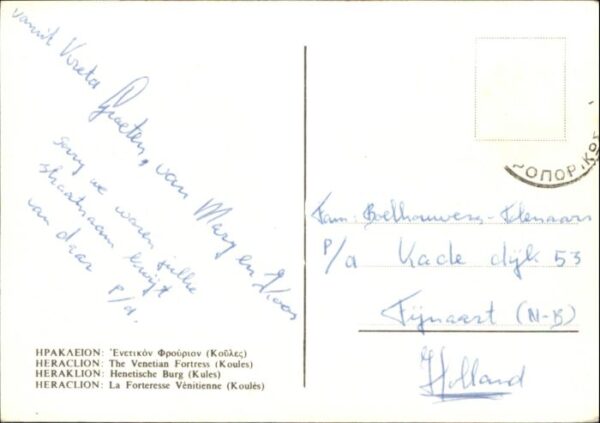 vanuit Kreta
Groeten, van Mary en
Sorry we waren jullie
straatnaam kwijt
van daar P/a.
ΗΡΑΚΛΕΙΟΝ: Ἐνετικόν Φρούριον (Κοῦλες)
HERACLION: The Venetian Fortress (Koules)
HERAKLION: Henetische Burg (Kules)
HERACLION: La Forteresse Vénitienne (Koulés)
ΟΠΟΡ.ΚΩΣ
Fam: Boelhouwers-
P/a Kade dijk 53
Fijnaart (N-B)
Holland